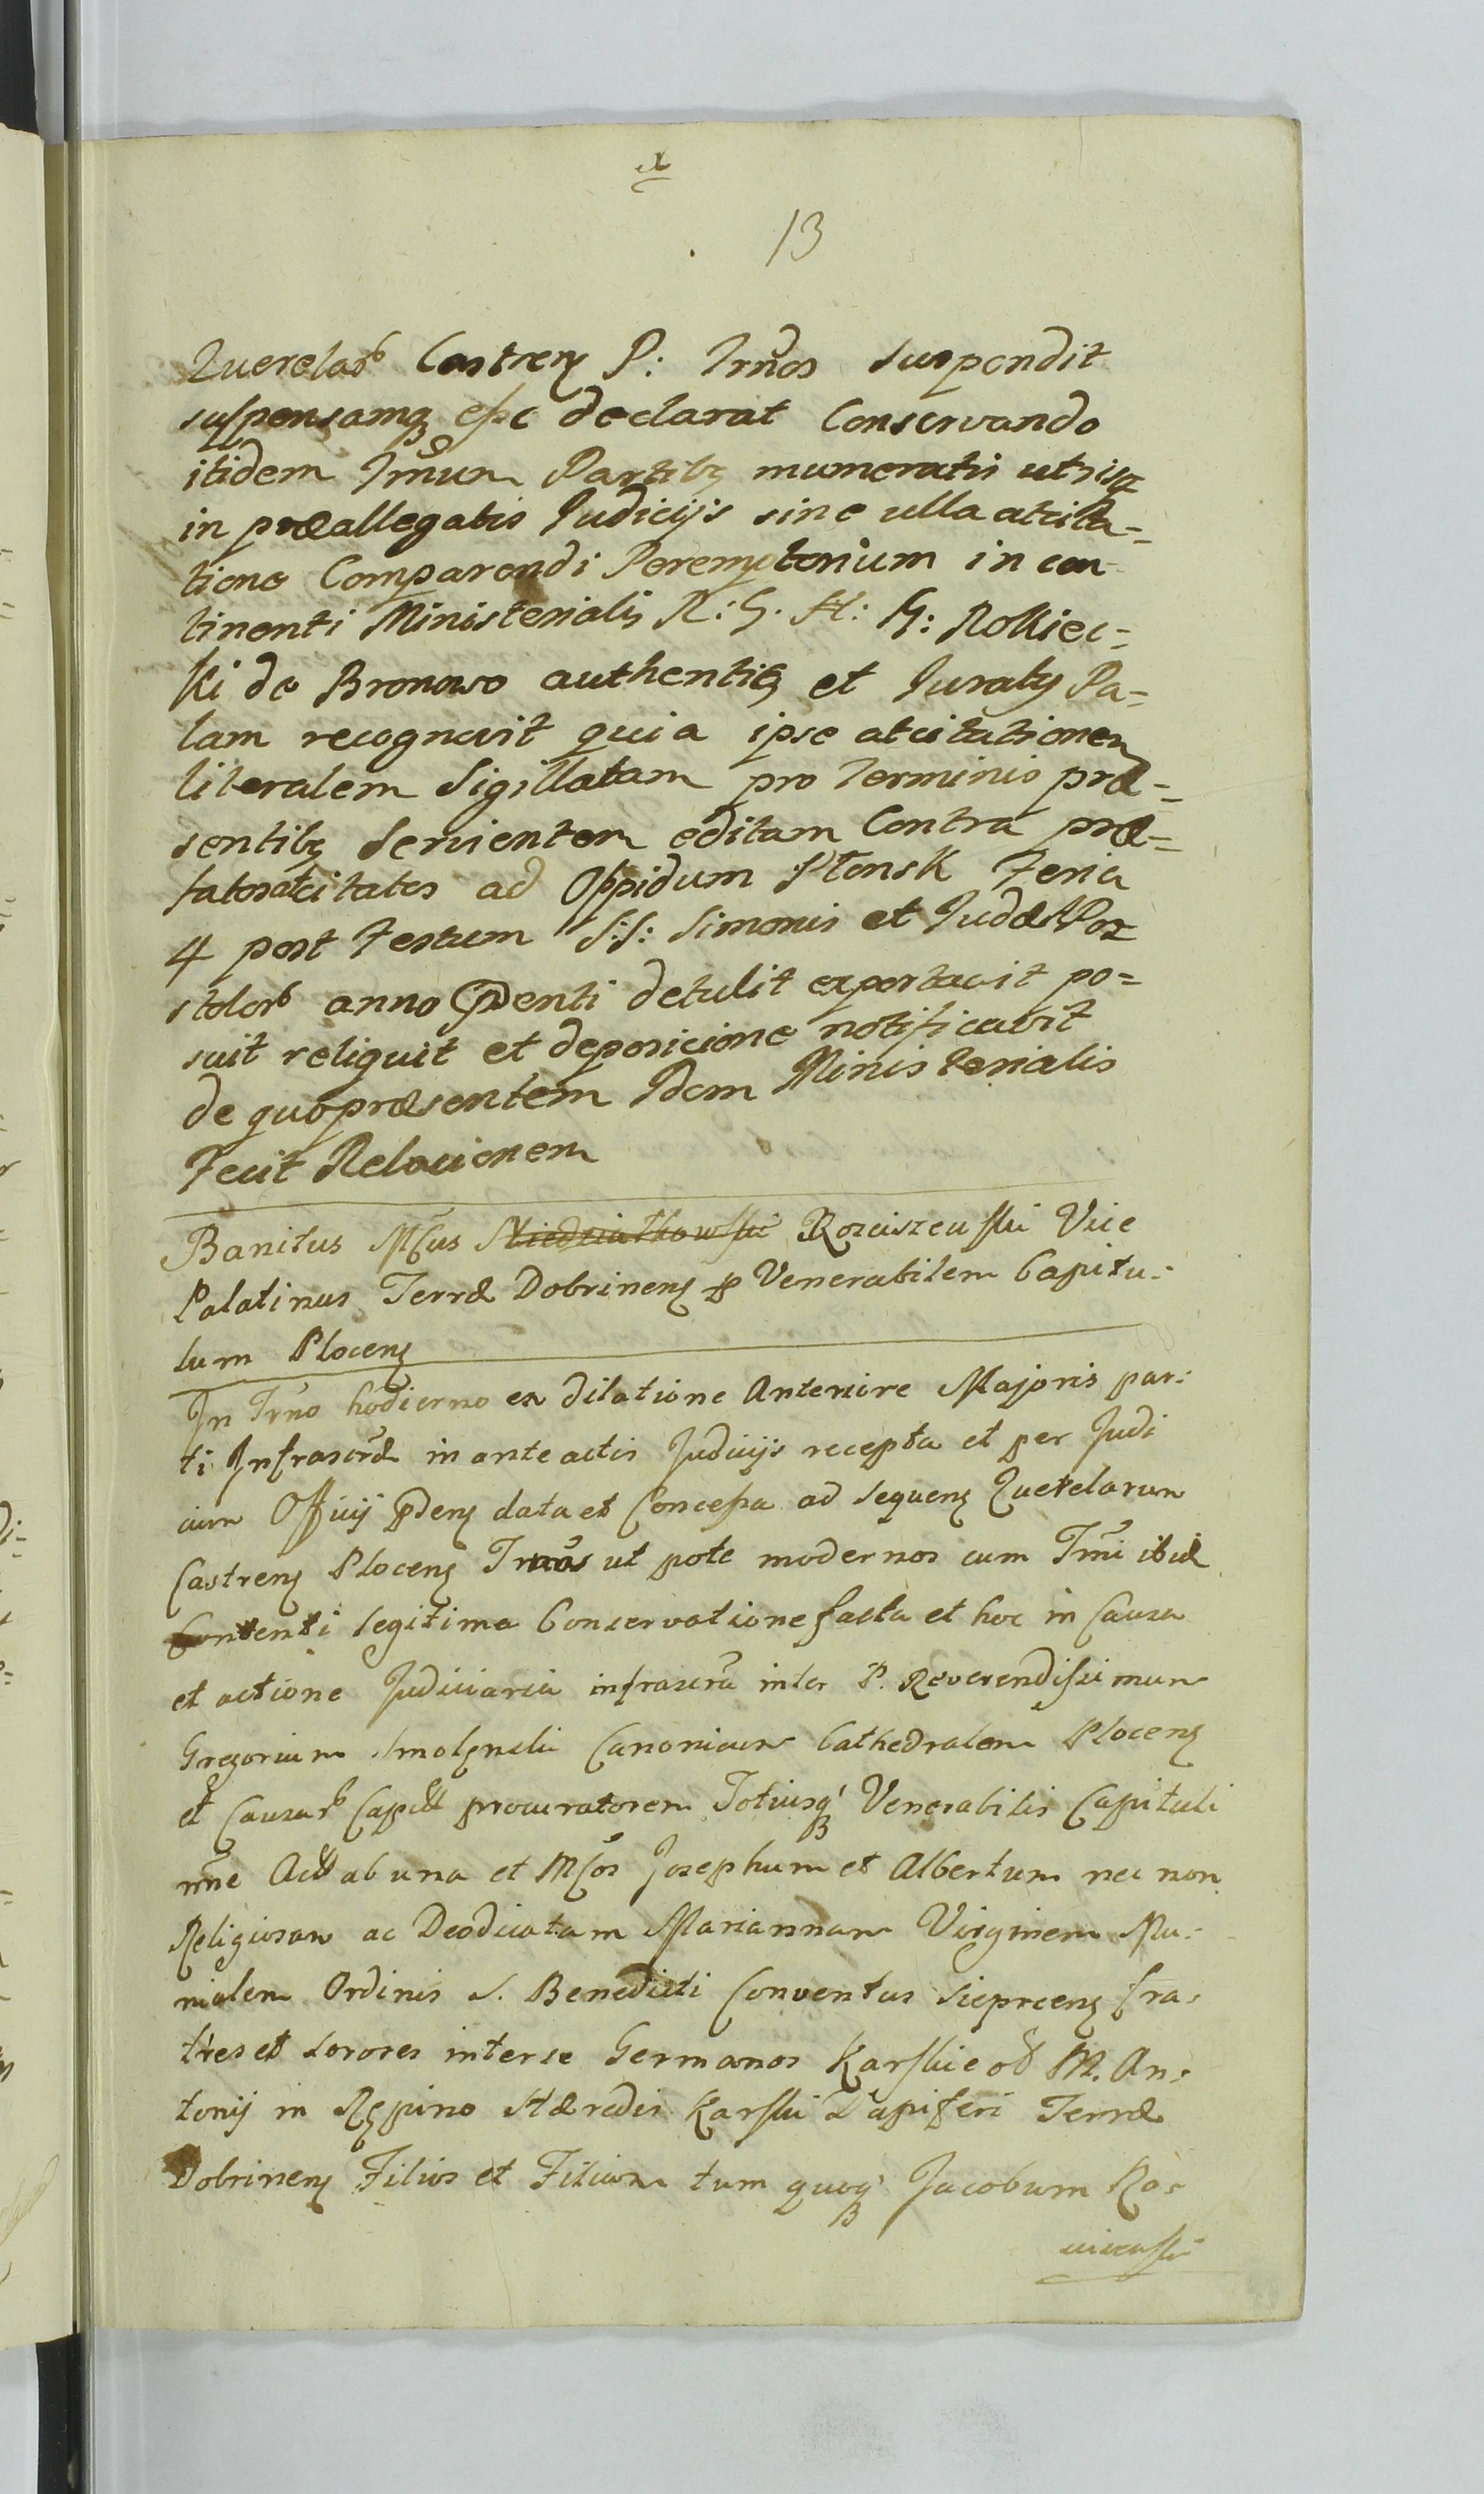 13
Querelarb Castrens P: Trnos suspendit
suspensamq esse declarat Conservando
itidem Trnum Partibs numeratis utrisq
in præallegatis Judicijs sine ulla atcita=
tione Comparendi Peremptorium in con
tinenti Ministerialis R: G. H: G: Rokiec=
ki de Bronowo authentis et Juratus Pa=
lam recognovit quia ipse atcitationem
literalem Sigillatam pro Terminis præ=
sentibs Servientem editam Contra præ=
fatos atcitatos ad Oppidum Płonsk Feria
4 post Festum S:S: Simonis et Judæ Apo
stolorb anno Pdenti detulit exportavit po=
suit reliquit et deposicione notificavit
de quo præsentem Idem Ministerialis
Fecit Relacionem
Banitus Mcus Niedziałkowski Rosciszewski Vice
Palatinus Terræ Dobrinens p Venerabilem Capitu=
lum Plocens
In Trno hodierno ex dilatione Anteriore Majoris par=
ti Infrascræ in ante actis Judicijs recepta et per Judi
cium Officij Pdens data et Concessa ad sequens Querelarum
Castrens Plocens Trnos ut pote modernos cum Trni ibid
Contenti legitima Conservatione facta et hoc in Causa
et actione Judiciaria infrascra inter P. Reverendissimum
Gregorium Smolenski Canonicum Cathedralem Plocens
et Causarb Capll procuratorem Totiusq Venerabilis Capituli
nne Act ab una et Mcos Josephum et Albertum nec non
Religiosam ac Deodicatam Mariannam Virginem Mo=
nialem Ordinis S. Benedicti Conventus Sieprcens fra=
tres et sorores inter se Germanos Karskie od M. An=
tonij in Rempino Hæredis Karski Dapiferi Terræ
Dobrinens Filios et Filiam tum quoq Jacobum Ros=
ciszewski